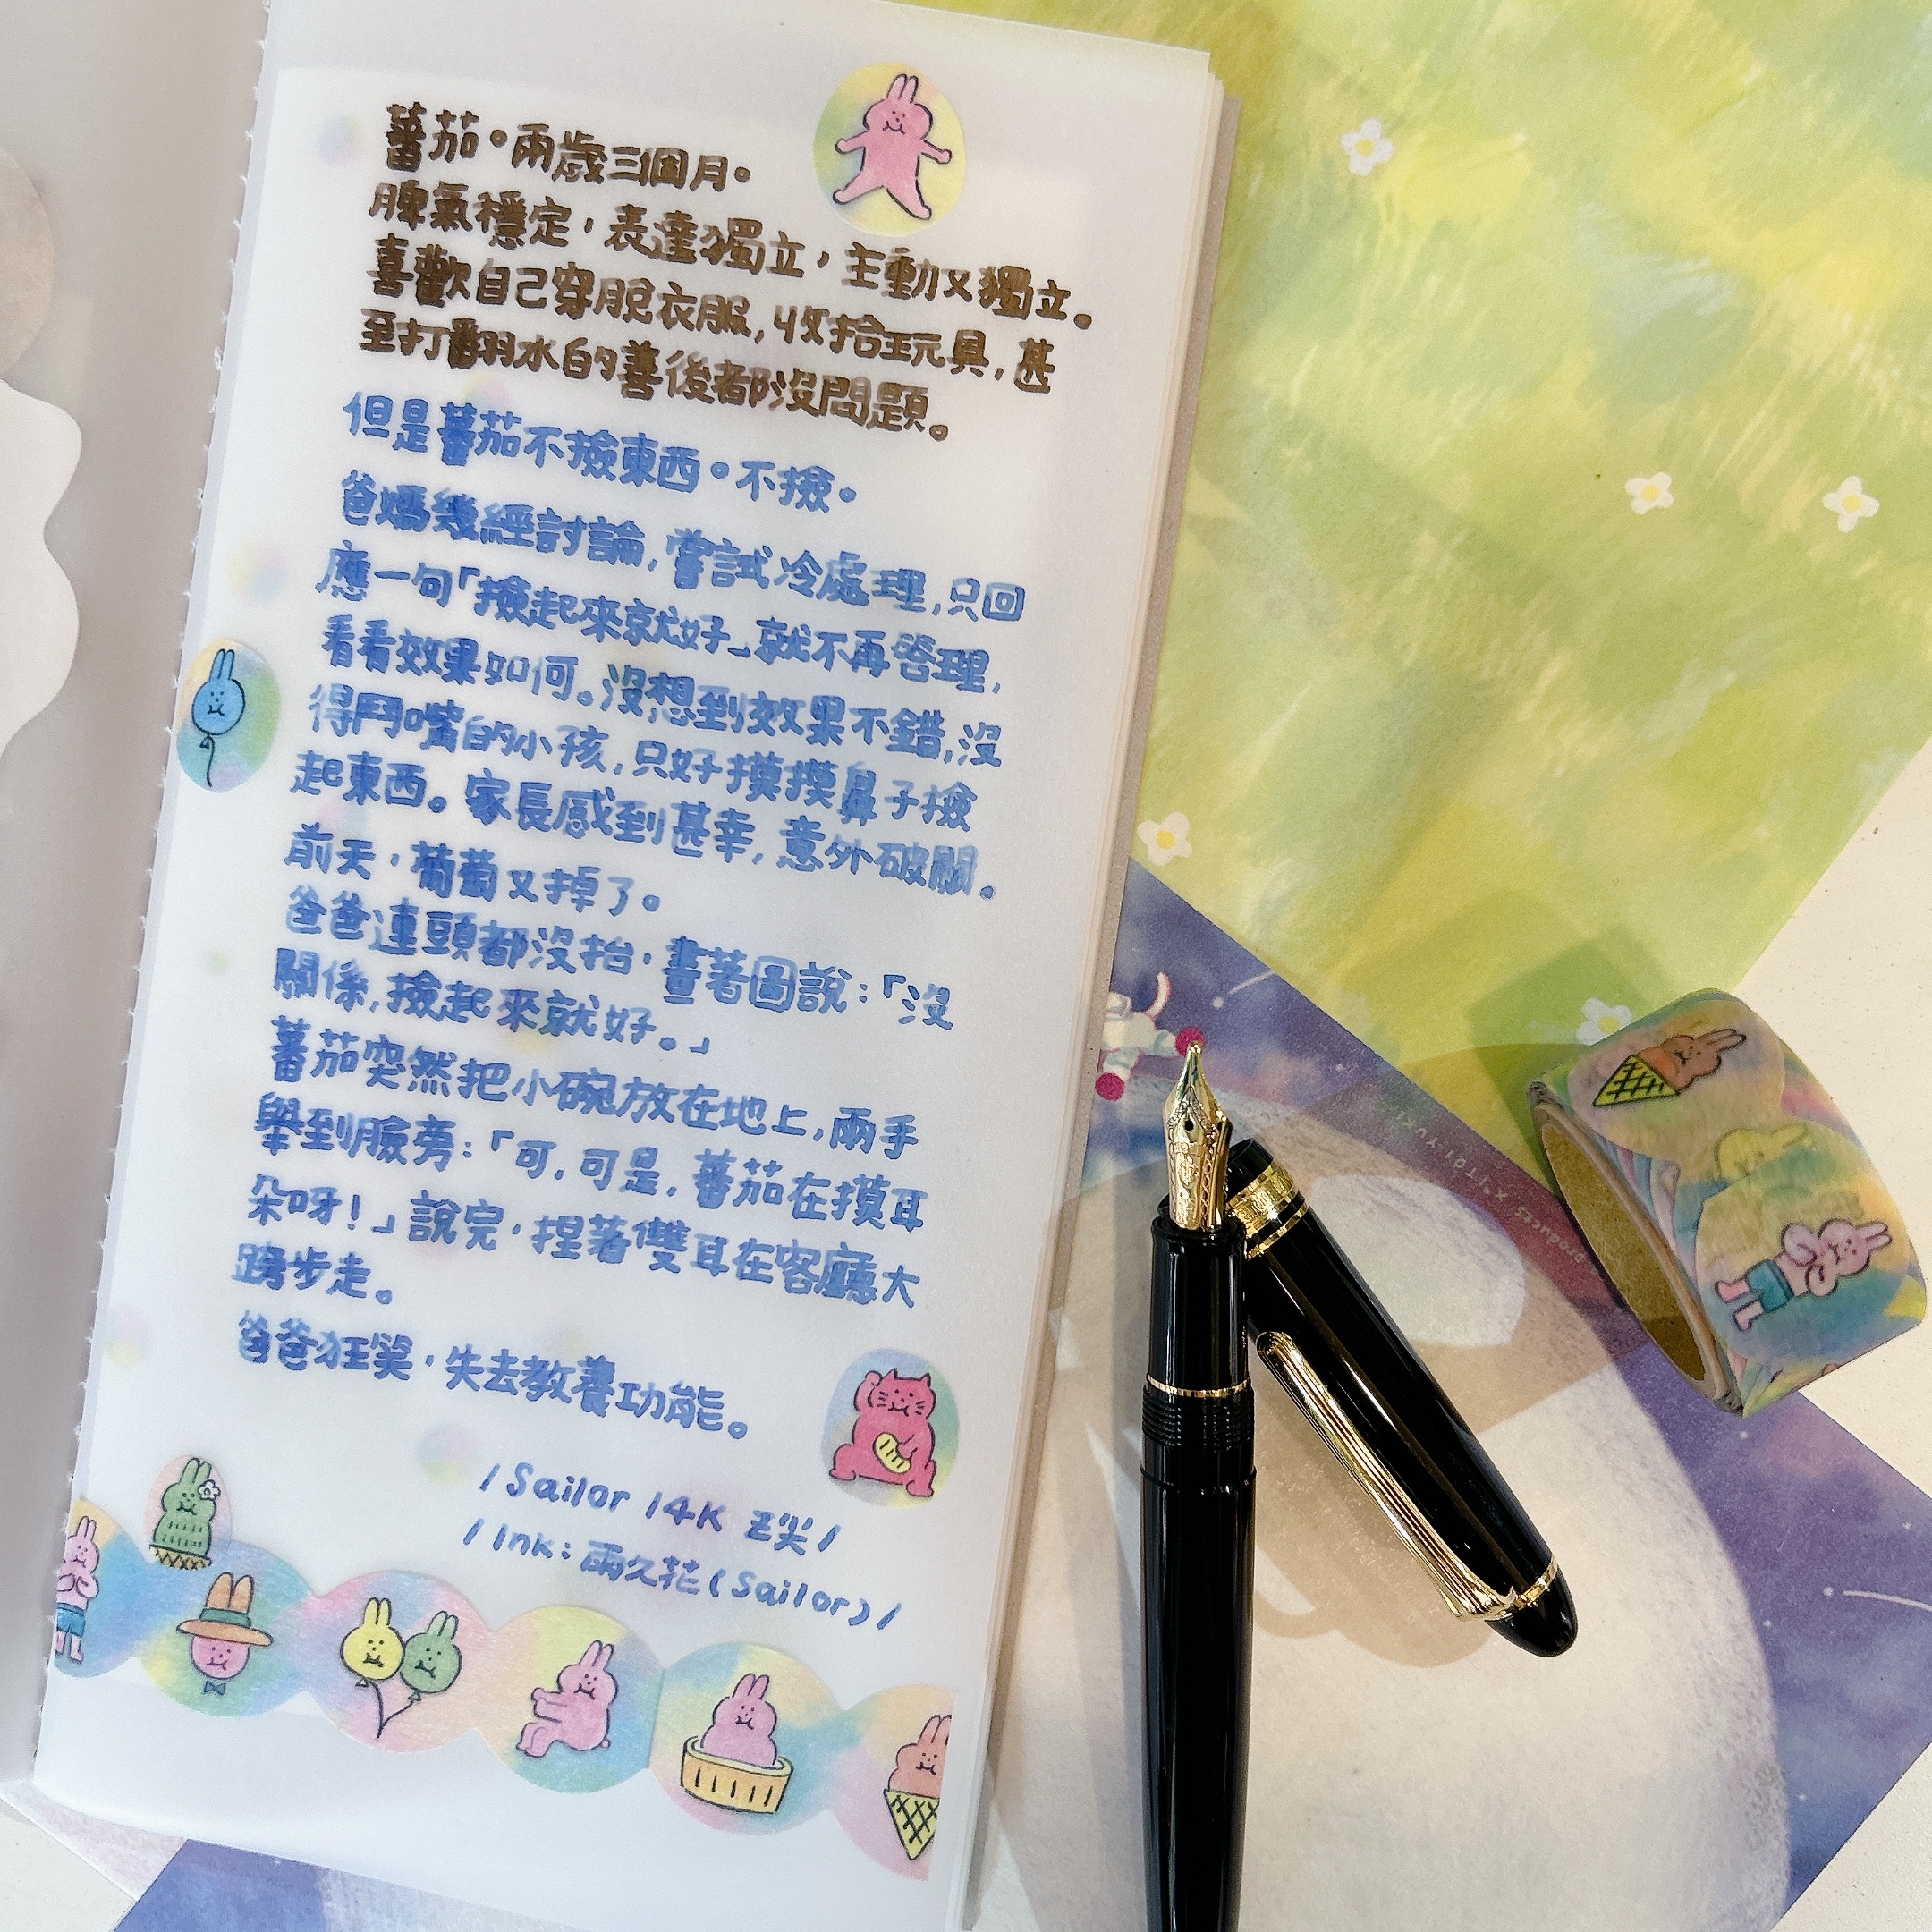 蕃茄。兩歲三個月。
脾氣穩定，表達獨立，主動又獨立。
喜歡自己穿脫衣服，收拾玩具，甚
至打翻水的善後都沒問題。
但是蕃茄不撿東西。不撿。
爸媽幾經討論，嘗試冷處理，只回
應一句「撿起來就好」就不再管理，
看看效果如何。沒想到效果不錯，沒
得鬥嘴的小孩，只好摸摸鼻子撿
起東西。家長感到甚幸，意外破關。
前天，葡萄又掉了。
爸爸連頭都沒抬，畫著圖說：「沒
關係，撿起來就好。」
蕃茄突然把小碗放在地上，兩手
舉到臉旁：「可，可是，蕃茄在摸耳
朵呀！」說完，捏著雙耳在客廳大
跨步走。
爸爸狂笑，失去教養功能。
/Sailor 14K Z尖/
/Ink：雨久花(Sailor)/